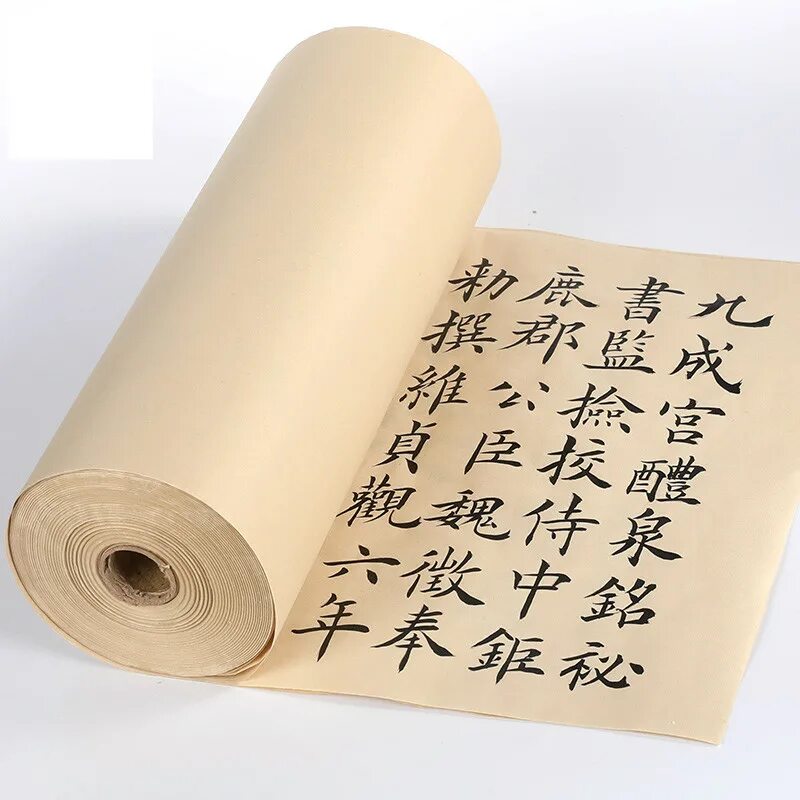 九成宫醴泉銘祕
書監撿挍侍中鉅
鹿郡公臣魏徵奉
勑撰維貞觀六年